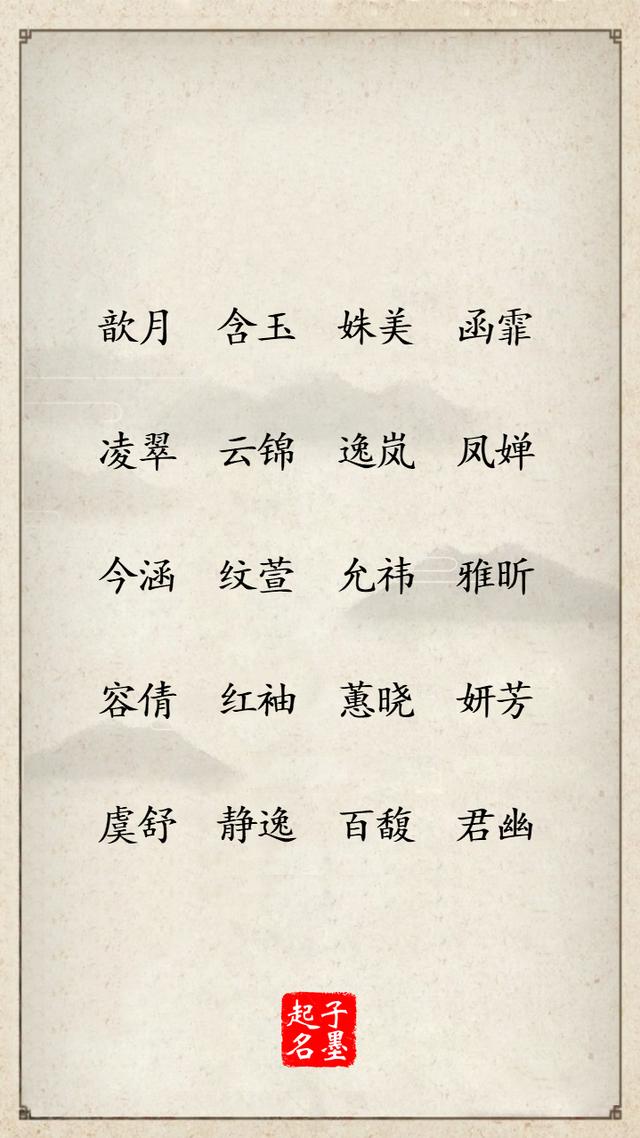 歆月 含玉 姝美 函霏
凌翠 云锦 逸岚 凤婵
今涵 纹萱 允祎 雅昕
容倩 红袖 蕙晓 妍芳
虞舒 静逸 百馥 君幽
子墨
起名